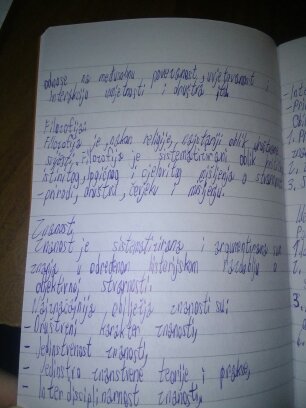 odnose na međusobnu povezanost, uvjetovanost i
interakciju umjetnosti i društva
Filozofija:
Filozofija je, nakon religije, najstariji oblik društvene
svijesti. Filozofija je sistematizirani oblik
istinitog, logičnog i cjelovitog mišljenja o stvarnosti
- prirodi, društvu, čovjeku i mišljenju.
Znanost,
Znanost je sistematizirana i argumentirana
znanja u određenom historijskom razdoblju o
objektivnoj stvarnosti.
Najznačajnija obilježja znanosti su:
- Društveni karakter znanosti,
- Jedinstvenost znanosti,
- Jedinstvo znanstvene teorije i prakse,
- Interdisciplinarnost znanosti,